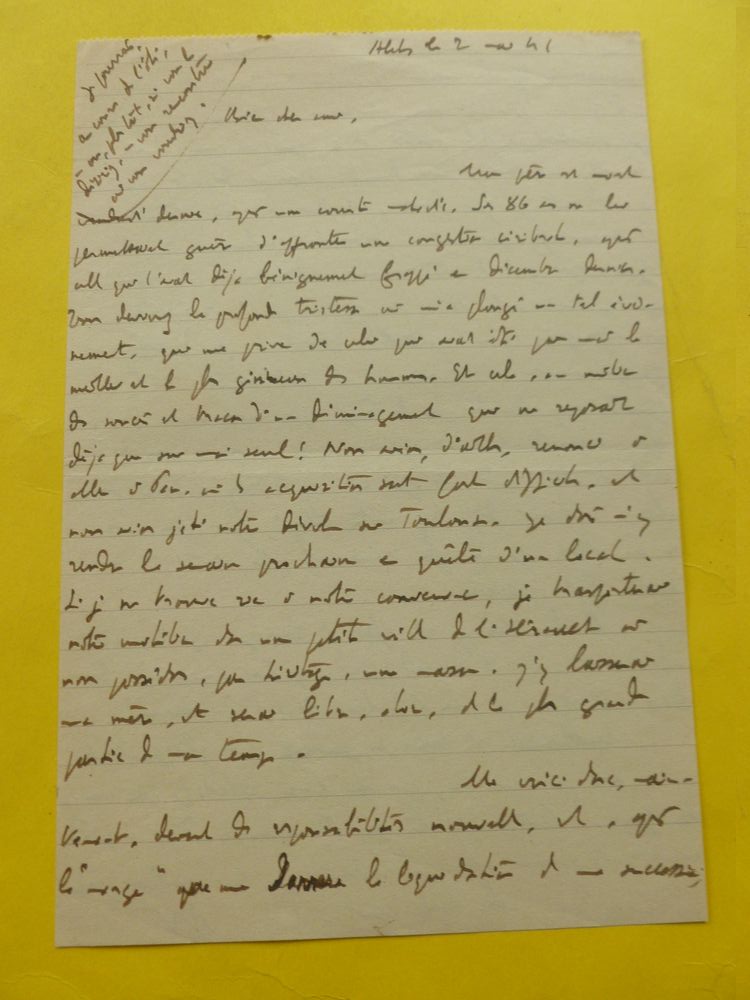 le 2 mai 41
Bien cher ami,
Mon père est mort
vendredi dernier, après une courte maladie. Ses 86 ans ne lui
permettaient guère d'affronter une congestion cérébrale, après
celle qui l'avait déjà bénignement frappé en décembre dernier.
Vous devinez la profonde tristesse où m'a plongé un tel évé-
nement, qui me prive de celui qui avait été pour moi le
meilleur et le plus généreux des hommes. Et cela, au milieu
des soucis et tracas d'un déménagement qui ne reposait
déjà que sur moi seul! Nous avions, d'ailleurs, renoncé à
aller à où les acquisitions sont fort difficiles, et
nous avions jeté notre dévolu sur Toulouse. Je dois m'y
rendre la semaine prochaine en quête d'un local.
Si je ne trouve rien à notre convenance, je transporterai
notre mobilier dans une petite ville de l'Hérault où
nous possédons, par héritage, une maison. J'y laisserai
ma mère, et serai libre, alors, de la plus grande
partie de mon temps.
Me voici donc, main-
tenant, devant des responsabilités nouvelles, et, après
le "orage" que me donnera la liquidation de ma succession,
Je pourrai,
au cours de l'été,
- ou, plus tôt, si vous le
désirez, - vous rencontrer
où vous voudrez.